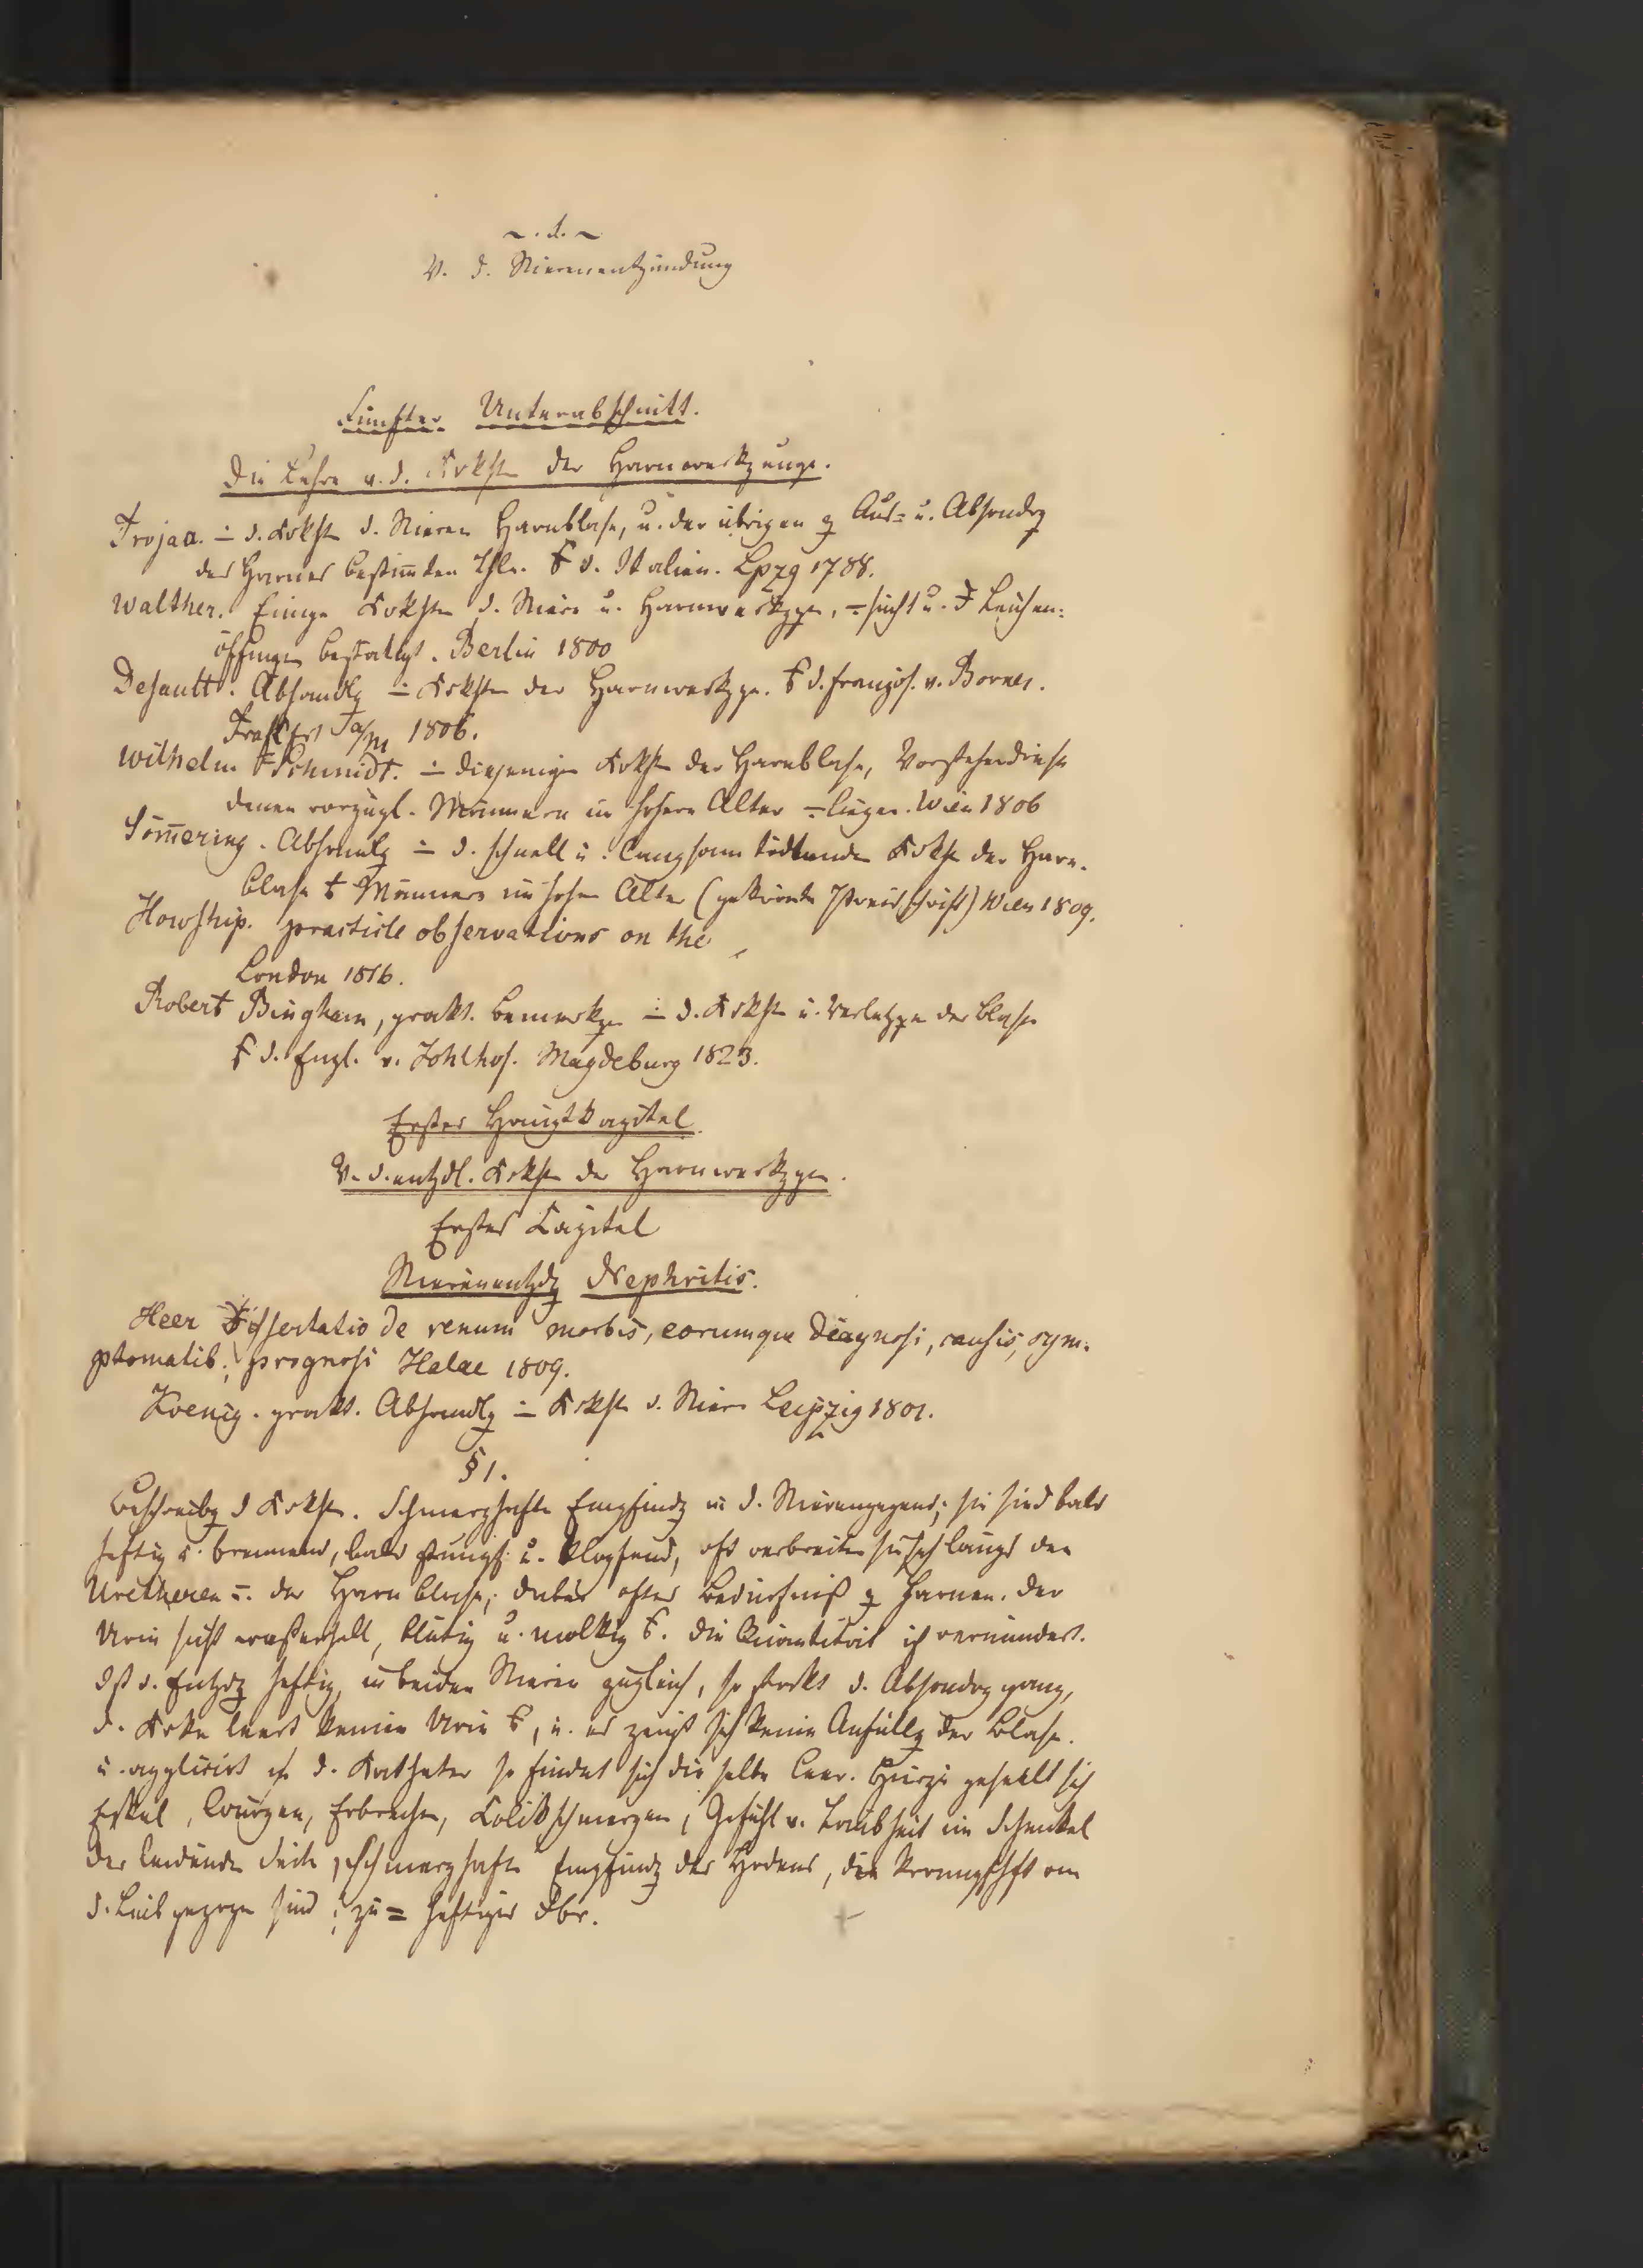 ~ . 1. ~
V. d. Nierenentzündung
Fünfter Unterabschnitt.
Die Lehre v. d. Krkhtn der Harnwerkzeuge.
Trojaa. ÷ d. Krkhtn d. Nieren Harnblase, u. der übrigen z Aus= u. Absondrg
des Harnes bestim̄ten Thle. d. Italien. Lpzg 1788.
Walther. Einige Krkhtn d. Niere u. Harnwerkzge, sucht u. Leichen-
öffnungen bestätigt. Berlin 1800
Desault. Abhandlg ÷ Krkhtn der Harnwerkzge. d. französ. v. Dorner.
Frankfrt a/m 1806.
Wilhelm Schmidt. ÷ diejenigen Krkhtn der Harnblase, Vorsteherdrüse
denen vorzügl. Männern im hohern Alter Wien 1806
Söm̄ering. Abhandlg ÷ d. schnell u. langsam tödtenden Krkhtn der Harn-
blase Männern im hohen Alter (gekrönte Preisschrift) Wien 1809.
Howship. practicle observations on the
London 1816.
Robert Bingham, prakt. Bemerkgen ÷ d. Krkhtn u. Verletzgen der Blase
d. Engl. v. Dohlhof. Magdeburg 1823.
Erstes Hauptkapitel
V. d. entzdl. Krkhtn der Harnwerkzge.
Erstes Capitel
Nierenentzdg Nephritis.
Heer Dissertatio de renum morbis, eorumque diagnosi, causis, sym-
ptomatib. prognosi Halae 1809.
Koenig. prakt. Abhandlg ÷ Krkhtn d. Niere Leipzig 1801.
§ 1.
Beschreibg d Krkht. Schmerzhafte Empfindg in d. Nierengegend; sie sind bald
heftig u. brennend, bald stumpf u. klopfend, oft verbreiten sie sich längs den
Uretheren der Harnblase; dabei öfter Bedürfniß z Harnen. Der
Urin sieht wasserhell, blutig u. molkig Die Quantität ist vermindert.
Ist d. Entzdg heftig, in beiden Nieren zugleich, so stockt d. Absondrg ganz,
d. Krke leert keinen Urin, u. es zeigt sich keine Anfüllg der Blase.
u. applicirt d. Katheter so findet sich dieselbe leer. Hiezu gesellt sich
Eckel, Würgen, Erbrechen, Kolikschmerzen, Gefühl v. Taubheit im Schenkel
der leidenden Seite, schmerzhafte Empfindg des Hodens, die krampfhft an
d. Leib gezogen sind; zu = heftiges Fbr.